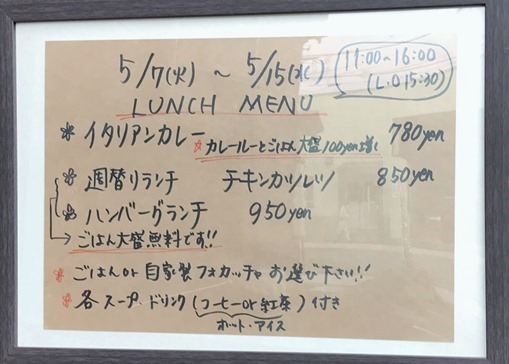 5/7(火) ~ 5/15(水) 11:00~16:00
(L.O 15:30)
LUNCH MENU
* イタリアンカレー ☆カレールーとごはん大盛100yen増し 780yen
* 週替りランチ チキンカツレツ 850yen
* ハンバーグランチ 950yen
→ ごはん大盛無料です!!
* ごはんor自家製フォカッチャ お選び下さい!!
* 各スープ・ドリンク(コーヒーor紅茶)付き
ホット・アイス